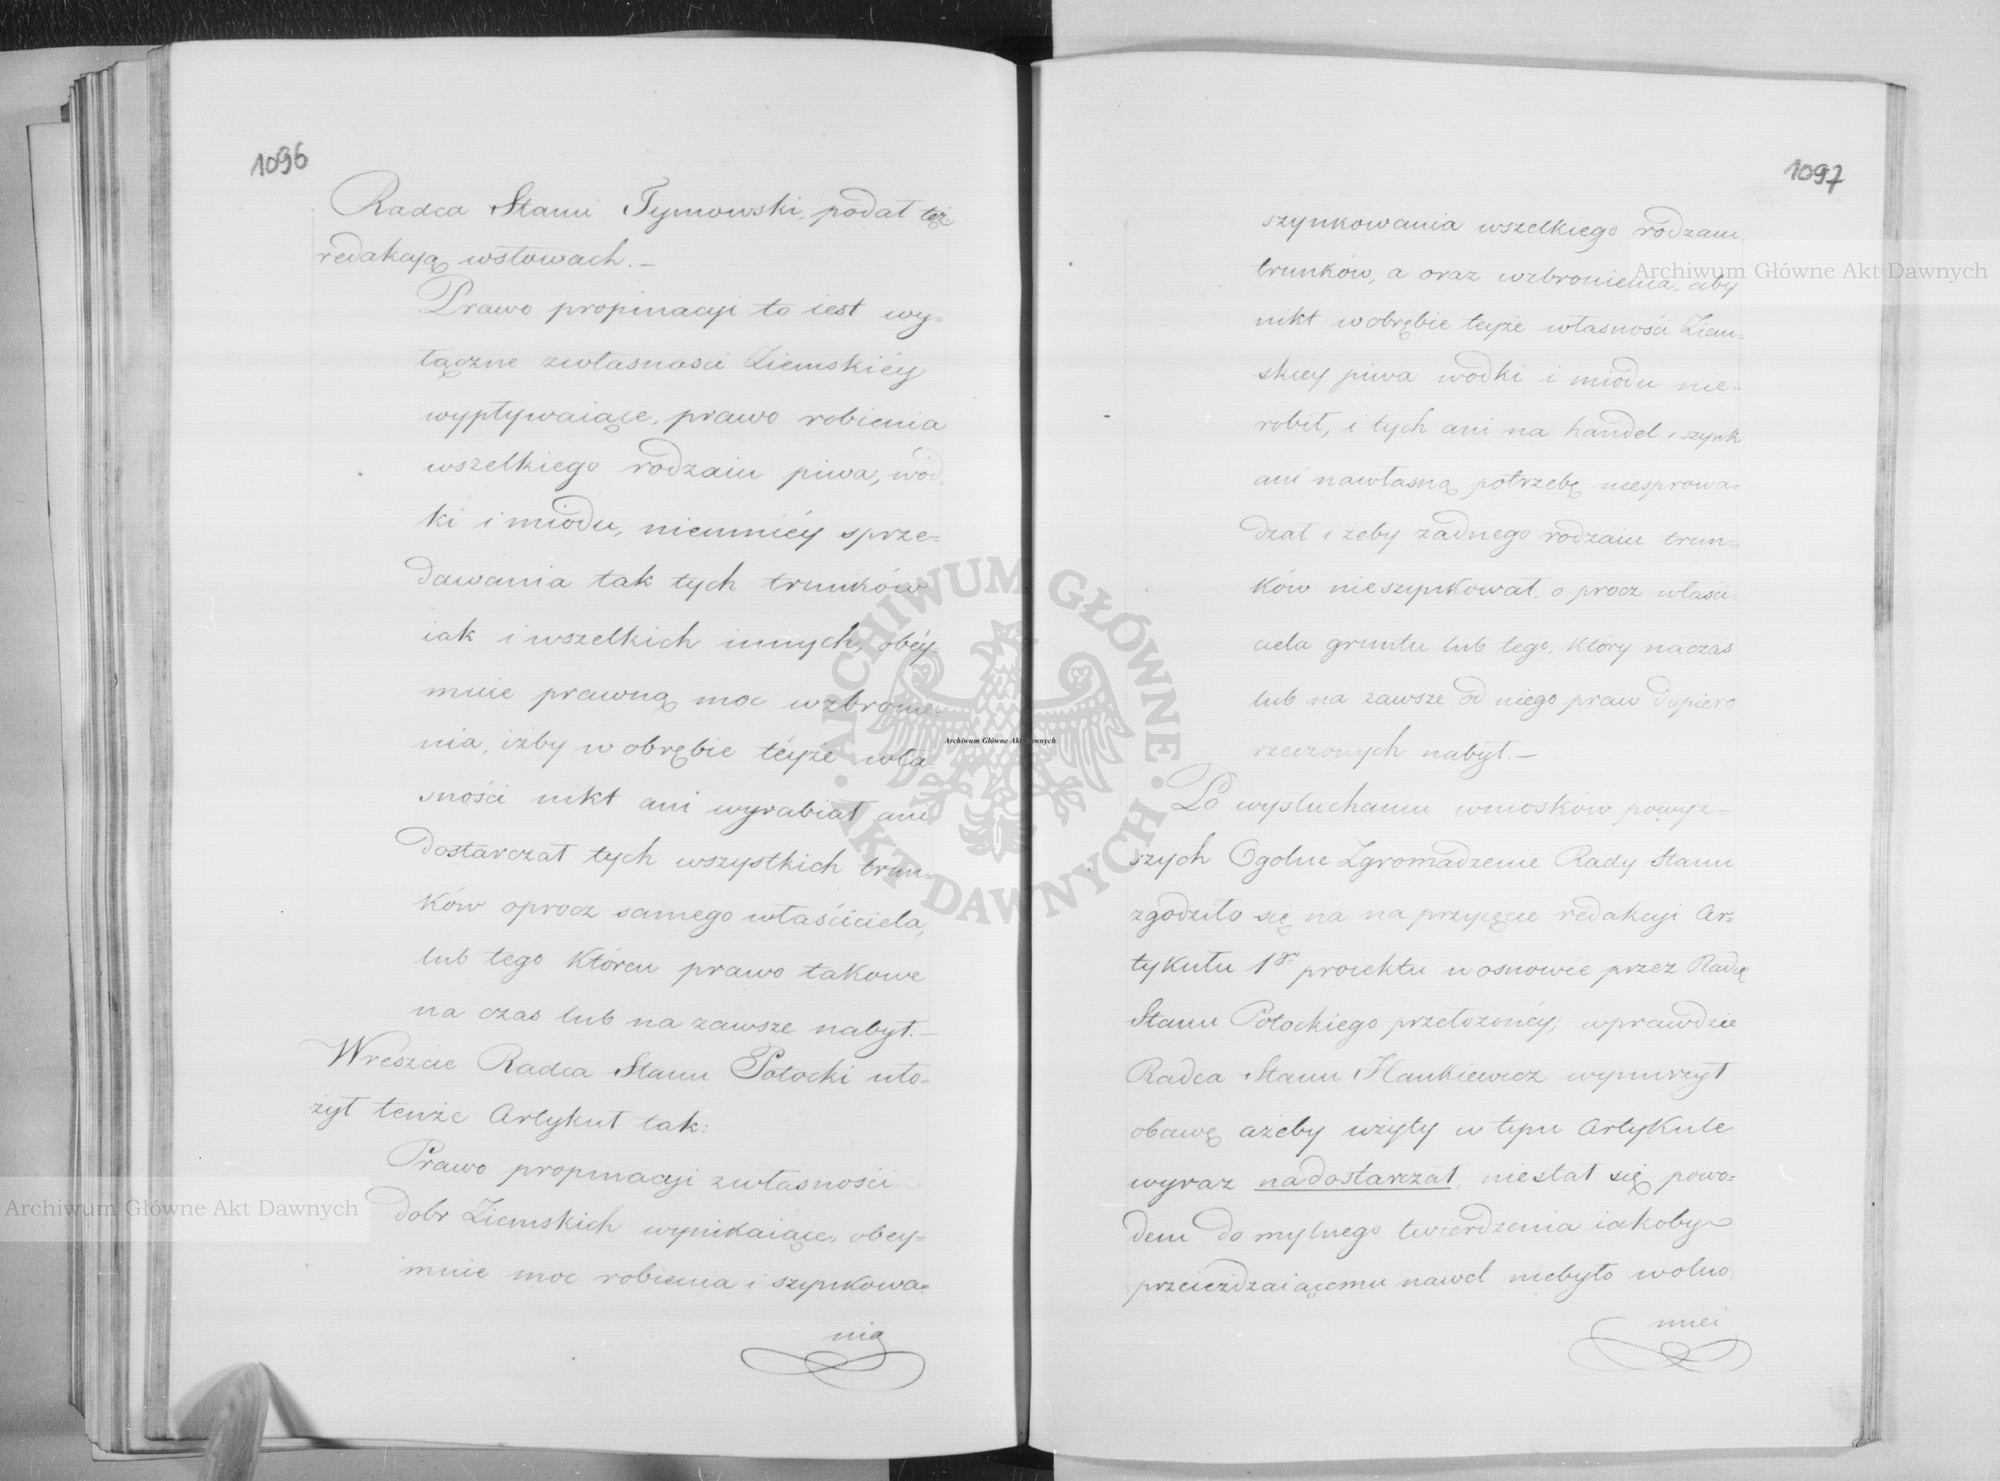 1096
Radca Stanu Tymowski, podał tęż
redakcją w słowach. –
Prawo propinacyi to iest wy=
łączne z własnosci Ziemskiéy
wypływaiące, prawo robienia
wszelkiego rodzaiu piwa, wód=
ki i miodu, niemniéy sprze=
dawania tak tych trunków
iak i wszelkich innych, obéy=
muie prawną moc wzbronie=
nia, iżby w obrębie téyże wła=
sności nikt ani wyrabiał ani
dostarczał tych wszystkich trun=
ków oprocz samego właściciela,
lub tego któren prawo takowe
na czas lub na zawsze nabył. –
Wreszcie Radca Stanu Potocki uło=
żył tenże Artykuł tak:
Prawo propinacyi z własności
dobr Ziemskich wynikaiące, obey=
muie moc robienia i szynkowa=
nia
1097
szynkowania wszelkiego rodzaiu
trunków, a oraz wzbronienia, aby
nikt w obrębie teyże własności Ziem=
skiey piwa wodki i miodu nie=
robił, i tych ani na handel i szynk
ani na własną potrzebę niesprowa=
dzał i żeby żadnego rodzaiu trun=
ków nieszynkował, oprocz właści=
ciela gruntu lub tego, który na czas
lub na zawsze od niego praw dopiero
rzeczonych nabył. –
Po wysłuchaniu wniosków powyż=
szych Ogolne Zgromadzenie Rady Stanu
zgodziło się na na przyięcie redakcyi Ar=
tykułu 1go proiektu w osnowie przez Radcę
Stanu Potockiego przełożonéy; wprawdzie
Radca Stanu Hankiewicz wynurzył
obawę ażeby użyty w tym Artykule
wyraz nadostarczał, niestał się powo=
dem do mylnego twierdzenia iakoby
przeieżdzaiącemu nawet niebyło wolno
mieć
Archiwum Główne Akt Dawnych
Archiwum Główne Akt Dawnych
Archiwum Główne Akt Dawnych
ARCHIWUM GŁÓWNE
AKT DAWNYCH